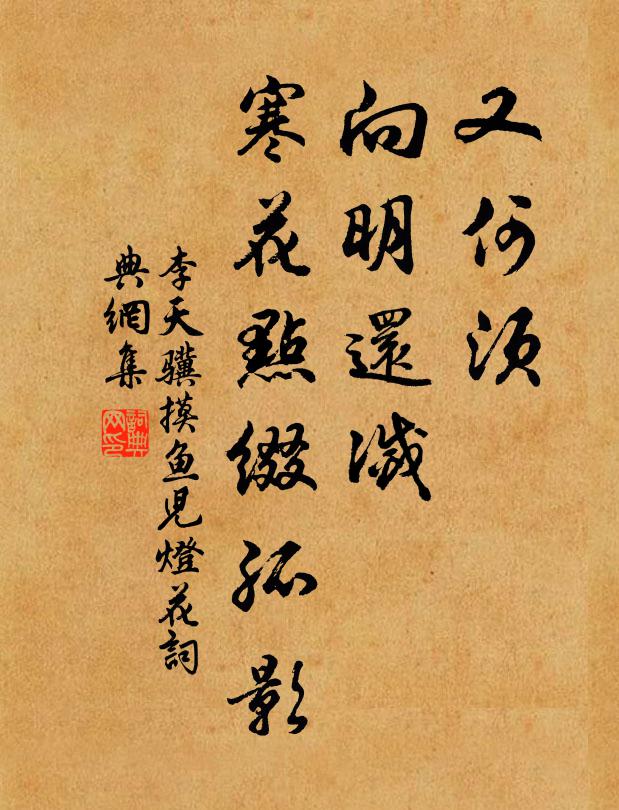 又何須
向明還滅
寒花點綴孤影
李天驥摸鱼児燈花詞
典網集
詞典
网印